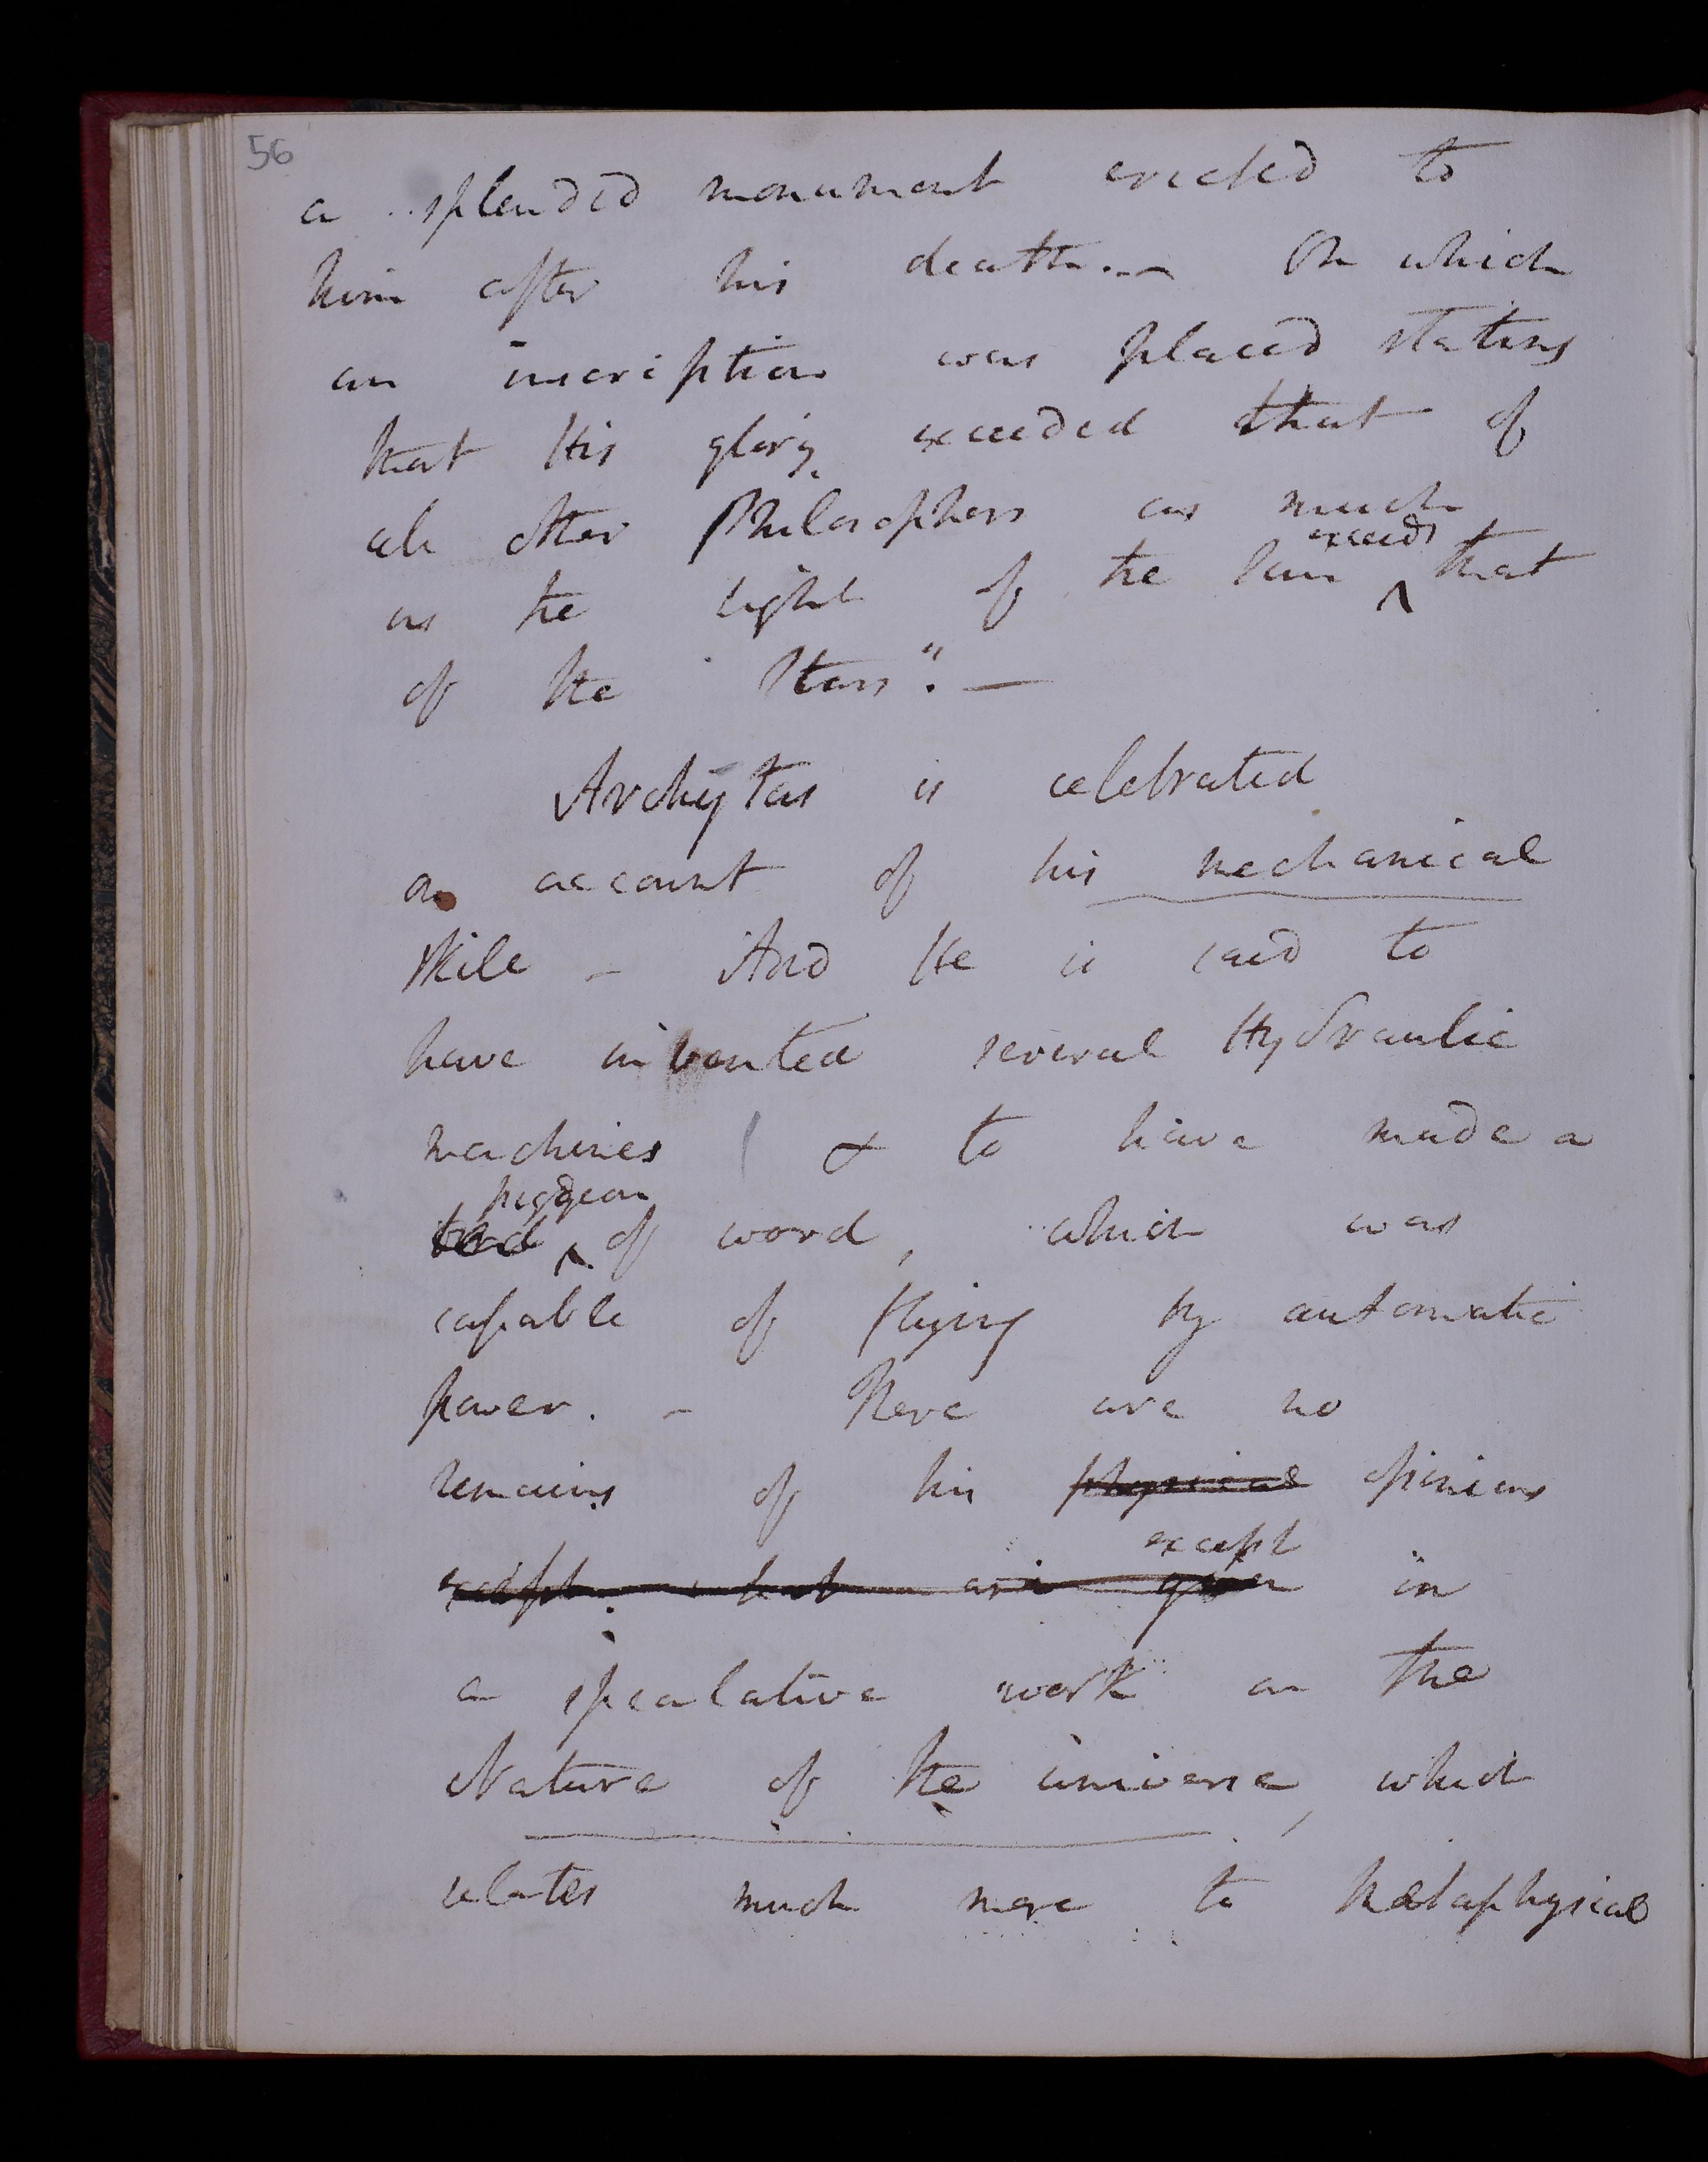 56
a splendid monument erected to
him after his death. — On which
an inscription was placed stating
that His glory exceeded that of
all other Philosophers as much
exceeds
as the light of the Sun ^ that
of the Stars". —
Archytas is celebrated
on account of his mechanical
Skill – And He is said to
have invented several Hydraulic
machines & to have made a
pidgeon
bird ^ of wood, which was
capable of flying by automatic
power. – There are no
remains of his physical opinions
except
except what are given in
a speculative work on the
Nature of the universe, which
relates much more to Metaphysical